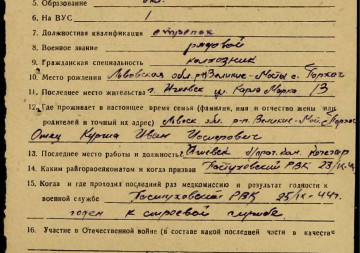 5. Образование
6. На ВУС 1
7. Должностная квалификация стрелок
8. Военное звание рядовой
9. Гражданская специальность колхозник
10. Место рождения Львовская обл. Великие-Мосты с.
11. Последнее место жительства г. Ижевск ул. Карла Маркса 13
12. Где проживает в настоящее время семья (фамилия, имя и отчество жены или
родителей и точный их адрес) Львов. обл. р-н Великие-Мост.
Отец Иван
13. Последнее место работы и должность Ижевск
14. Каким райгорвоенкоматом и когда призван РВК 23/
15. Когда и где проходил последний раз медкомиссию и результат годности к
военной службе РВК 25/IX-44г.
годен к строевой службе
16. Участие в Отечественной войне (в составе какой последней части в качестве